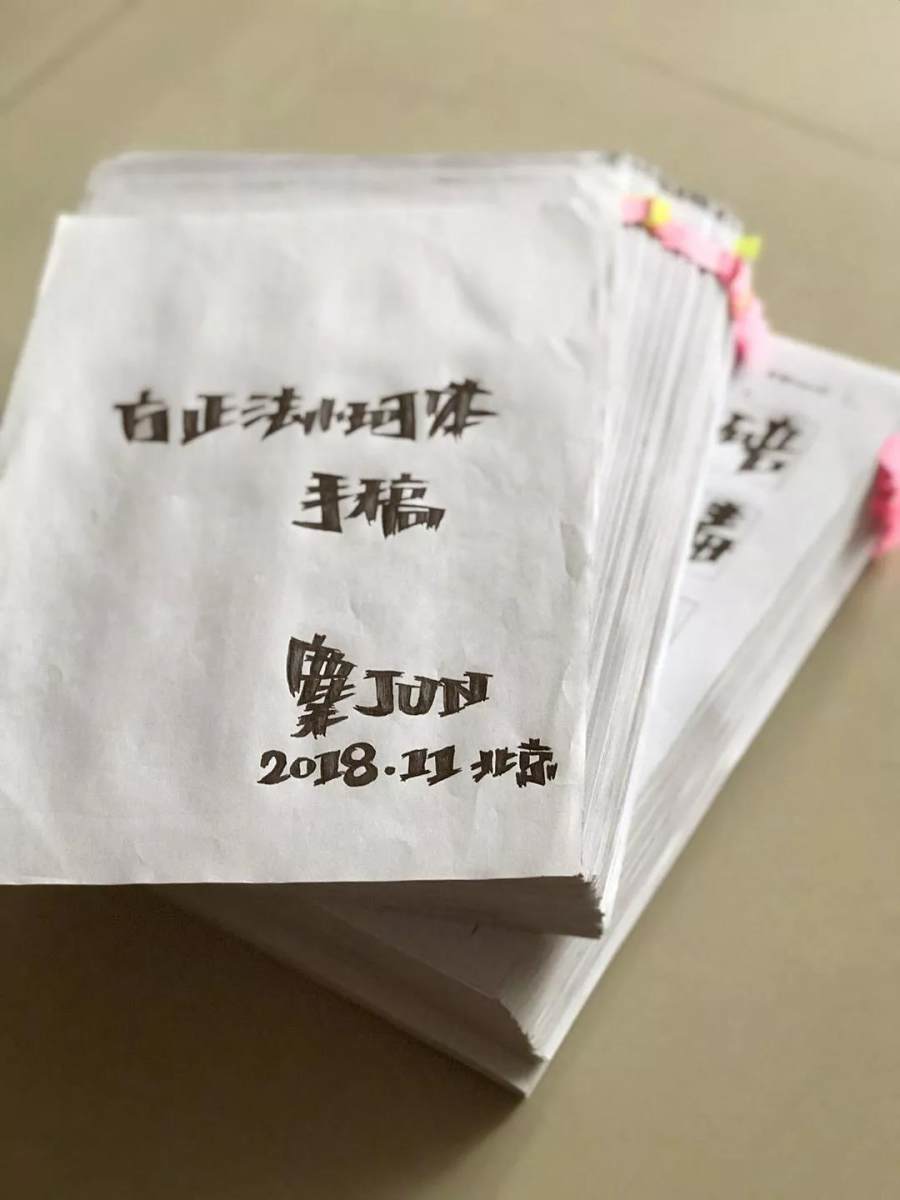 方正法小珂体
手稿
JUN
2018.11 北京